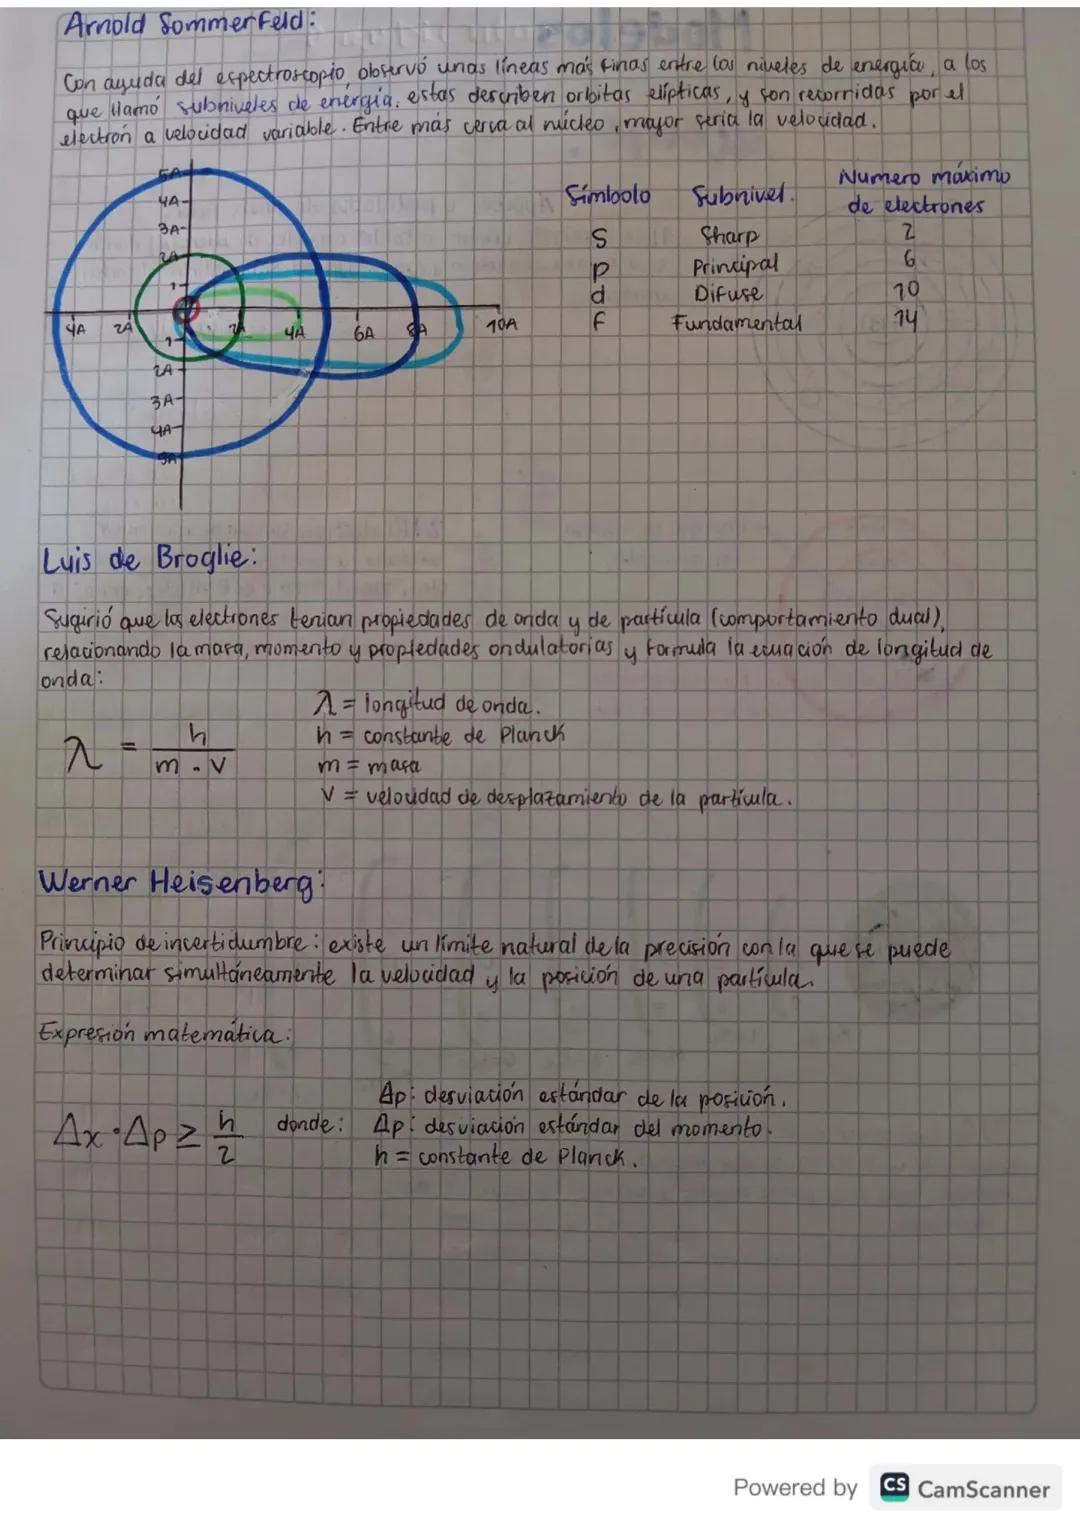 Arnold Sommerfeld:
Con ayuda del espectroscopio observó unas líneas más finas entre los niveles de energía, a los
que llamó subniveles de energía. estas describen orbitas elípticas, y son recorridas por el
electrón a velocidad variable. Entre más cerca al núcleo, mayor sería la velocidad.
5A
4A
3A
2A
1
4A 2A 2A 4A 6A 8A 10A
1
2A
3A
4A
5A
Símbolo Subnivel. Numero máximo
de electrones
S Sharp 2
p Principal 6
d Difuse 10
f Fundamental 14
Luis de Broglie:
Sugirió que los electrones tenian propiedades de onda y de partícula (comportamiento dual),
relacionando la masa, momento y propiedades ondulatorias y formula la ecuación de longitud de
onda:
λ = h / m · v
λ = longitud de onda.
h = constante de Planck
m = masa
V = velocidad de desplazamiento de la partícula.
Werner Heisenberg:
Principio de incertidumbre: existe un límite natural de la precisión con la que se puede
determinar simultáneamente la velocidad y la posición de una partícula.
Expresión matemática:
Δx · Δp ≥ h / 2 donde:
Δp: desviación estándar de la posición.
Δp: desviación estándar del momento.
h = constante de Planck.
Powered by CS CamScanner